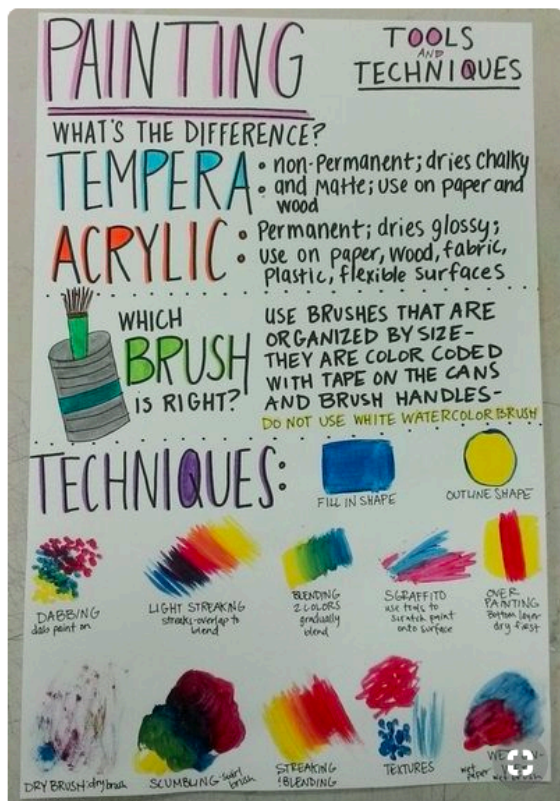 PAINTING
TOOLS
AND
TECHNIQUES
WHAT'S THE DIFFERENCE?
TEMPERA
• non-Permanent; dries chalky
• and Matte; use on paper and
wood
ACRYLIC
• Permanent; dries glossy;
• use on paper, wood, fabric,
Plastic, flexible surfaces
WHICH
BRUSH
IS RIGHT?
USE BRUSHES THAT ARE
ORGANIZED BY SIZE-
THEY ARE COLOR CODED
WITH TAPE ON THE CANS
AND BRUSH HANDLES-
DO NOT USE WHITE WATERCOLOR BRUSH
TECHNIQUES:
FILL IN SHAPE
OUTLINE SHAPE
DABBING
dab paint on
LIGHT STREAKING
streaks-overlap to
blend
BLENDING
2 COLORS
gradually
blend
SGRAFFITO
use tools to
scratch paint
onto surface
OVER
PAINTING
Bottom layer
dry first
DRY BRUSH: dry brush
SCUMBLING: swirl
brush
STREAKING
!BLENDING
TEXTURES
WE
wet
paper